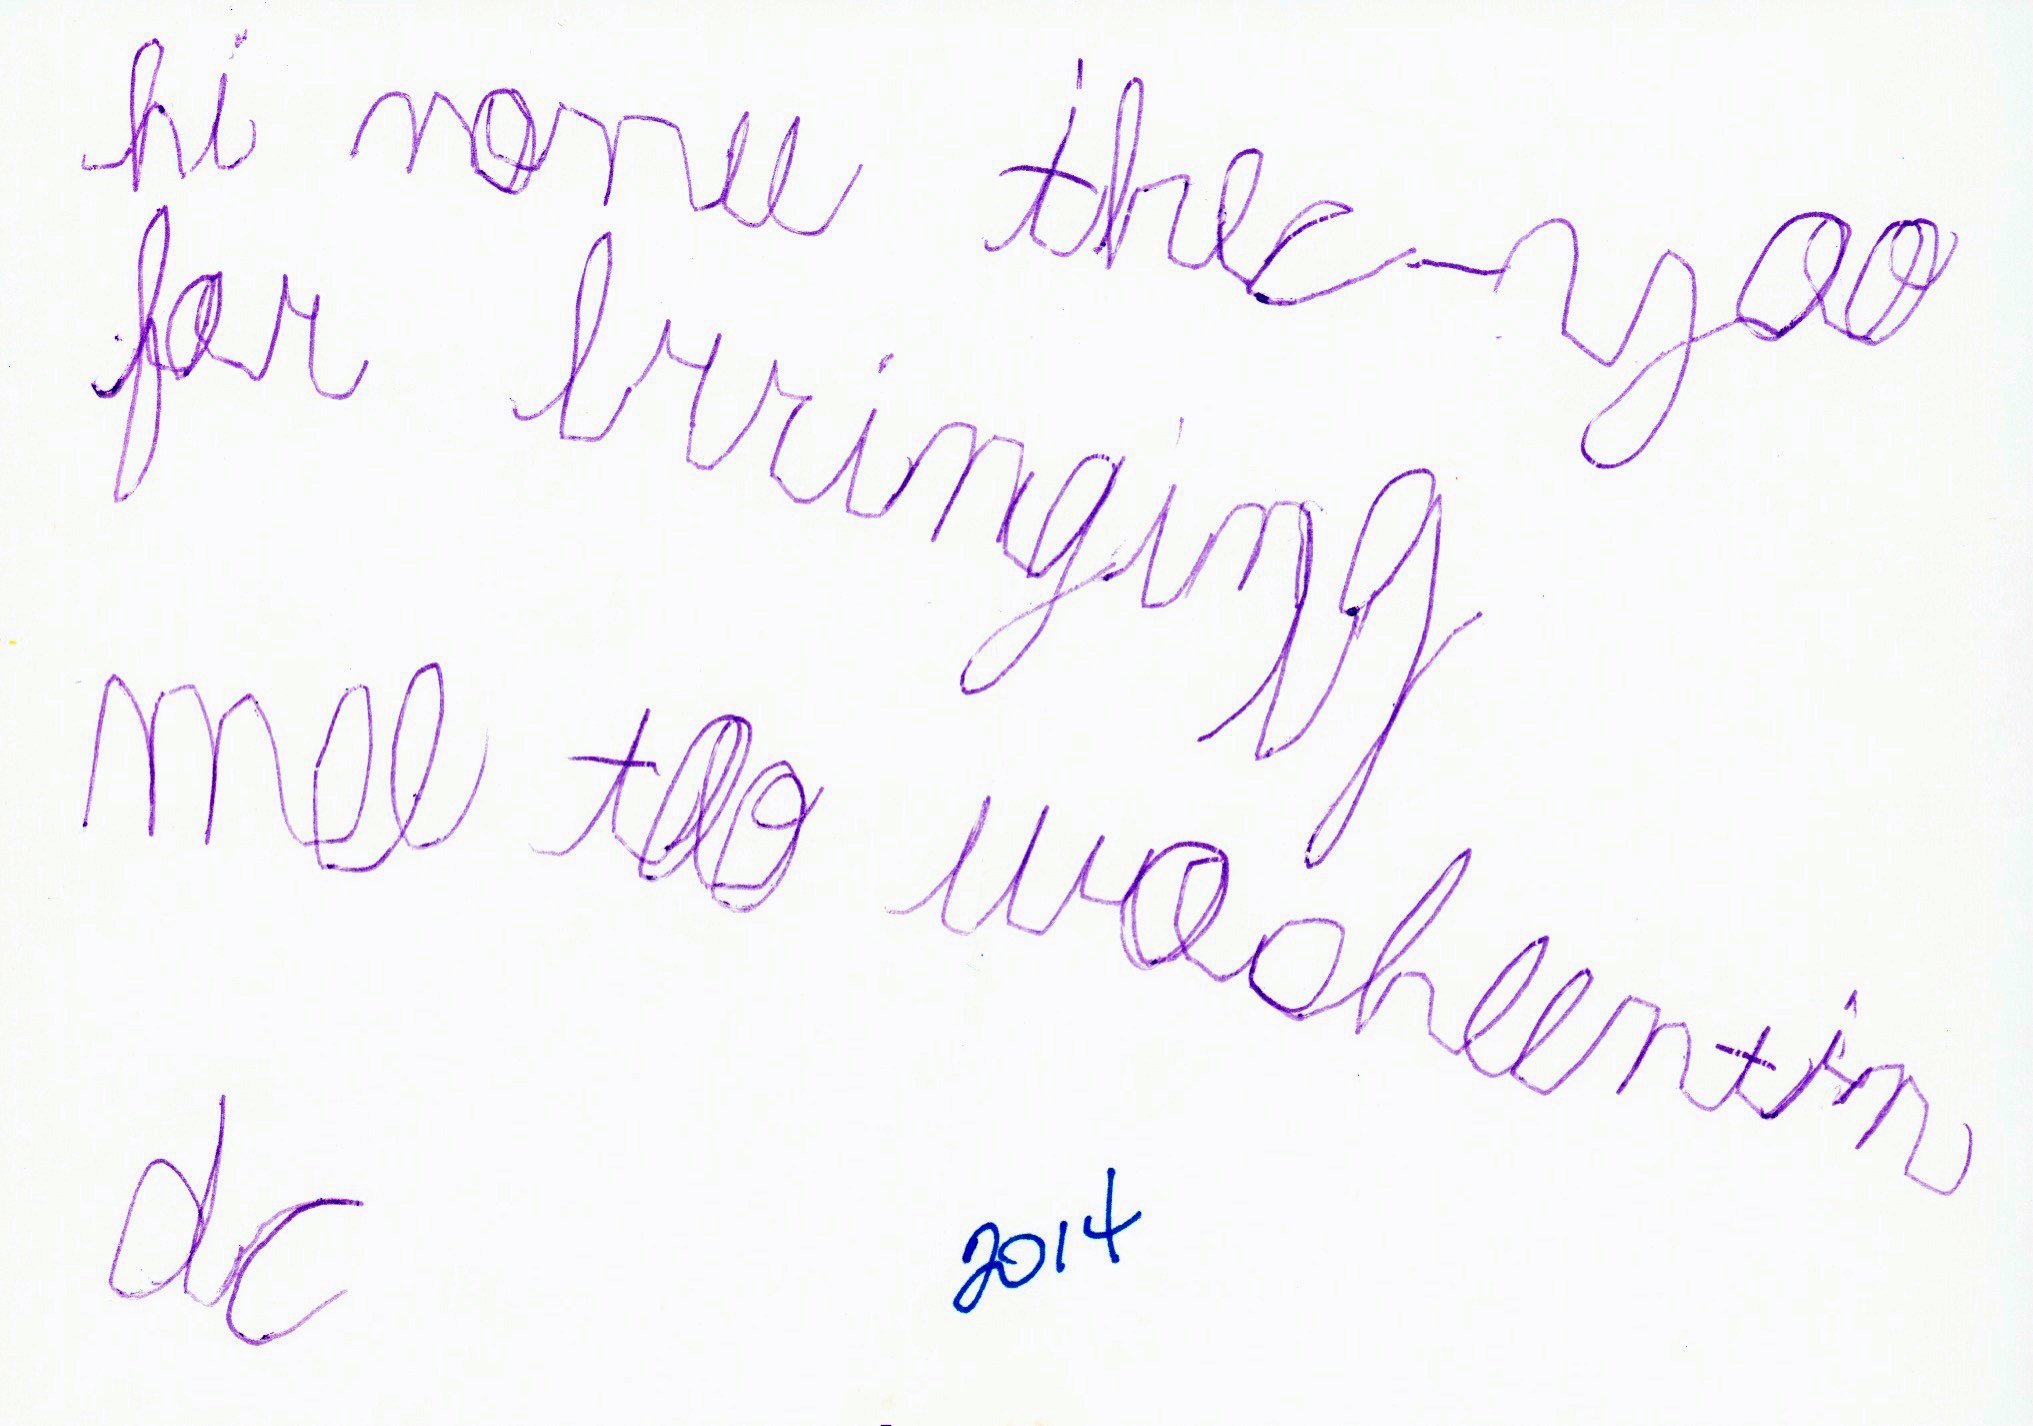 hi nonee thec-yoo
for brringing
mee too washeentin
dc
2014